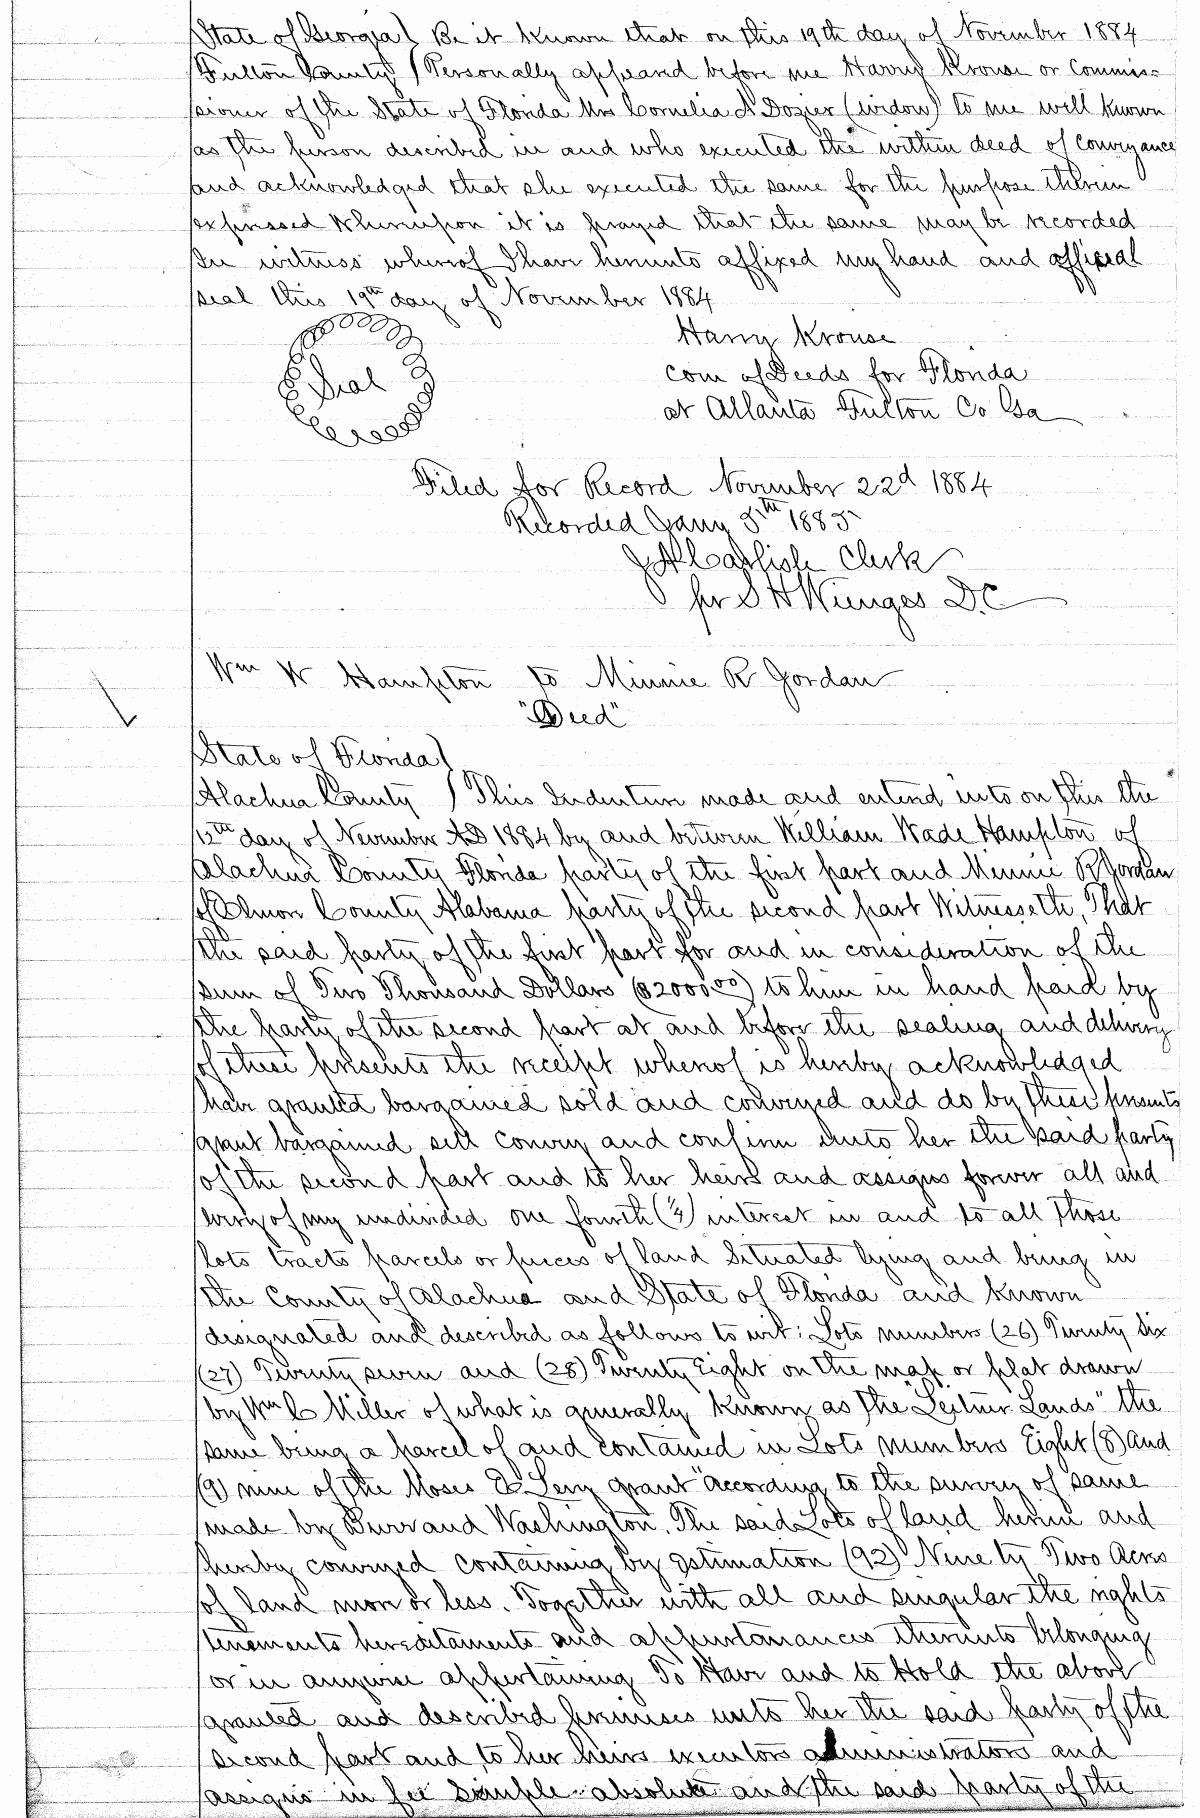 State of Georgia } Be it known that on this 19th day of November 1884
Fulton County } Personally appeared before me Harry Krouse or Commis-
sioner of the State of Florida Mrs Cornelia A Dozier (widow) to me will known
as the person described in and who executed the within deed of conveyance
and acknowledged that she executed the same for the purpose therein
expressed Whereupon it is prayed that the same may be recorded
In witness whereof I have hereunto affixed my hand and official
seal this 19th day of November 1884
Harry Krouse
Seal
com of Deeds for Florida
at Atlanta Fulton Co Ga
Filed for Record November 22d 1884
Recorded Jany 5th 1885
J A Carlisle Clerk
per S H Wienges D.C
Wm W Hampton to Minnie R Jordan
"Deed"
State of Florida }
Alachua County } This Indenture made and entered into on this the
12th day of November AD 1884 by and between William Wade Hampton of
Alachua County Florida party of the first part and Minnie R Jordan
of County Alabama party of the second part Witnesseth, That
the said party of the first part for and in consideration of the
sum of Two Thousand Dollars ($2000.00) to him in hand paid by
the party of the second part at and before the sealing and delivery
of these presents the receipt whereof is hereby acknowledged
have granted bargained sold and conveyed and do by these presents
grant bargained sell convey and confirm unto her the said party
of the second part and to her heirs and assigns forever all and
every of my undivided one fourth (1/4) interest in and to all those
lots tracts parcels or pieces of land Situated lying and being in
the County of Alachua and State of Florida and known
designated and described as follows to wit: Lots numbers (26) Twenty Six
(27) Twenty seven and (28) Twenty Eight on the map or plat drawn
by Wm C Miller of what is generally known as the "Leitner Lands" the
same being a parcel of and contained in Lots numbers Eight (8) and
(9) nine of the Moses E Levy grant "according to the survey of same
made by Burr and Washington. The said Lots of land herein and
hereby conveyed containing by estimation (92) Ninety Two Acres
of land more or less. Together with all and singular the rights
tenements hereditaments and appurtenances thereunto belonging
or in anywise appertaining To Have and to Hold the above
granted and described premises unto her the said party of the
second part and to her heirs executors administrators and
assigns in fee simple absolute and the said party of the